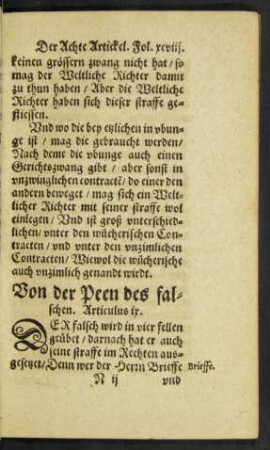 Der Achte Artickel. Fol. xcviij.
keinen grössern zwang nicht hat / so
mag der Weltliche Richter damit
zu thun haben / Aber die Weltliche
Richter haben sich dieser straffe ge-
fliessen.
Vnd wo die bey etzlichen in vbun-
ge ist / mag die gebraucht werden /
Nach deme die vbunge auch einen
Gerichtszwang gibt / aber sonst in
vnzwinglichen contractē / do einer den
andern beweget / mag sich ein Welt-
licher Richter mit seiner straffe wol
einlegen / Vnd ist groß vnterschied-
lichen / vnter den wücherischen Con-
tracten / vnd vnter den vnzimlichen
Contracten / Wiewol die wücherische
auch vnzimlich genandt wirdt.
Von der Peen des fal-
schen. Articulus ix.
DER falsch wird in vier fellen
geübet / darnach hat er auch
seine straffe im Rechten aus-
gesetzet / Denn wer der Herrn Brieffe Brieffe.
N ij vnd